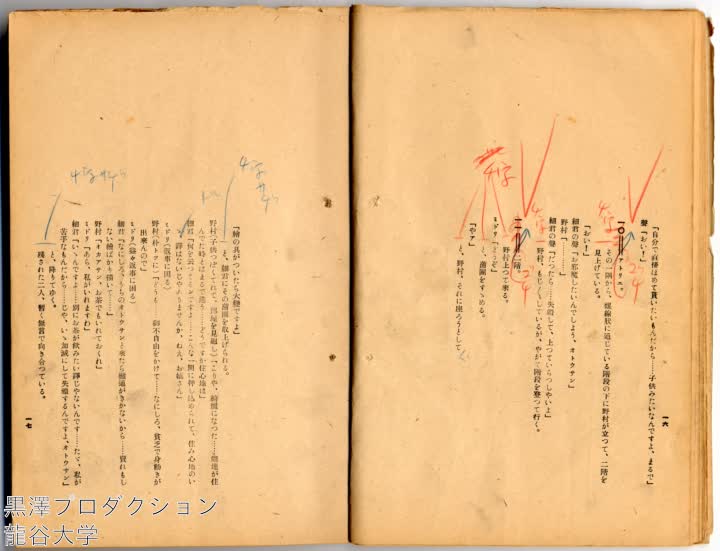 「自分で直接はめて貰いたいもんだから……子供みたいなんですよ、まるで」
聲「おい！」
一〇　アトリエ。
その一隅から、螺線狀に通じている階段の下に野村が立つて、二階を
見上げている。
「おい！」
細君の聲「お邪魔したいんでしよう、オトウサン」
野村「…………」
細君の聲「だつたら……失禮して、上つていらつしやいよ」
野村、もじ／＼しているが、やがて階段を登つて行く。
一一　二階
野村上つて來る。
ミドリ「どうぞ」
と、蒲團をすゝめる。
「やア」
と、野村、それに座ろうとして
一六
「繪の具がついたら大變ですよ」
と、細君にその蒲團を取上げられる。
野村（子供つぽくてれて、部屋を見廻し）「こりや、綺麗になつた……俺達が住
んでた時とはまるで違う……どうですか住心地は」
細君「何を云つてるンですよ……こんな一間に押し込められて、住み心地のい
ゝ譯はないじやありませんか、ねえ、お姉さん」
ミドリ（返事に困る）
野村（朴トツに）「どうも……御不自由をかけて……なにしろ、貧乏で身動きが
出來んので」
ミドリ（益々返事に困る）
細君「なにしろ、うちのオトウサンと來たら融通がきかないから……賣れもし
ない繪ばかり描いて……」
野村「オカアサン、お茶でもいれておくれ」
ミドリ「あら、私がいれますわ」
細君「いゝんですよ……別にお茶が飲みたい譯じやないんです……たゞ、私が
苦手なもんだから……じや、いゝ加減にして失禮するんですよ、オトウサン」
と、降りてゆく。
殘された二人、暫く無言で向き合つている。
一七
黒澤プロダクション
龍谷大学